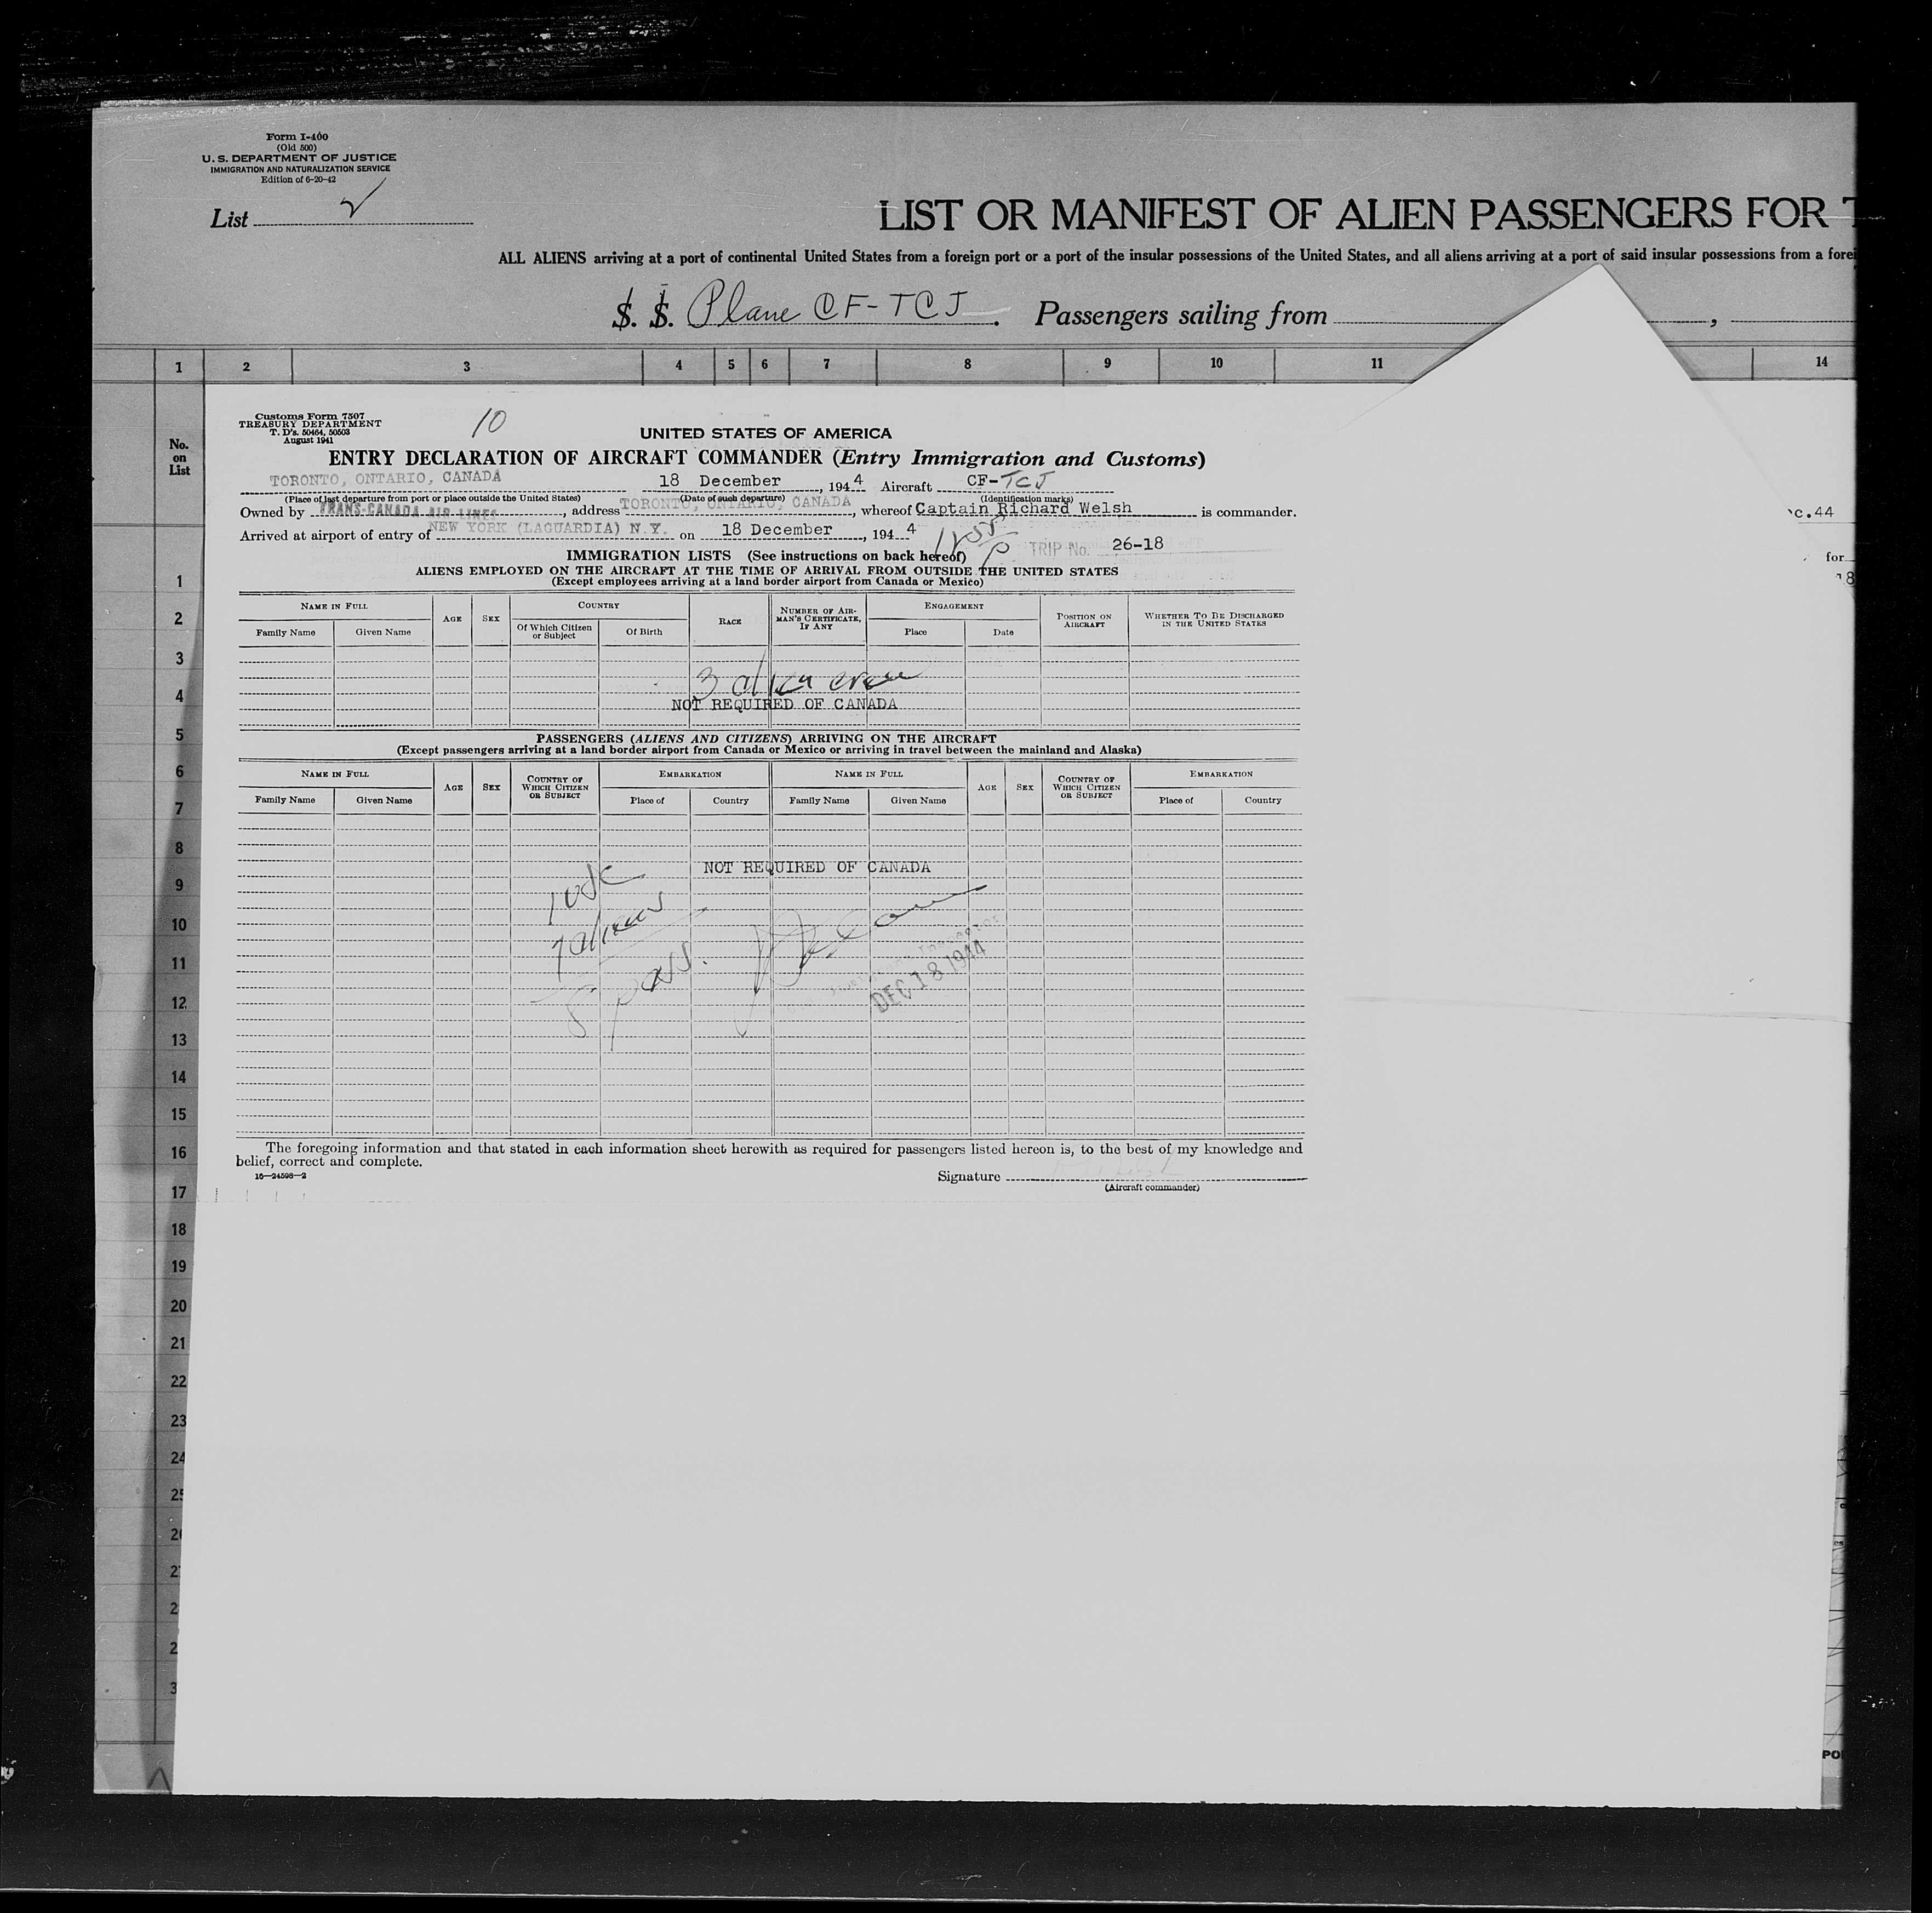 Form I-400
(Old 500)
U. S. DEPARTMENT OF JUSTICE
IMMIGRATION AND NATURALIZATION SERVICE
Edition of 6-20-42
List 2
LIST OR MANIFEST OF ALIEN PASSENGERS FOR T
ALL ALIENS arriving at a port of continental United States from a foreign port or a port of the insular possessions of the United States, and all aliens arriving at a port of said insular possessions from a forei
S. S. Plane CF-TCJ. Passengers sailing from , 
1 2 3 4 5 6 7 8 9 10 11 14
No. on List
Customs Form 7507
TREASURY DEPARTMENT
T. D's. 50464, 50503
August 1941
10
UNITED STATES OF AMERICA
ENTRY DECLARATION OF AIRCRAFT COMMANDER (Entry Immigration and Customs)
TORONTO, ONTARIO, CANADA 18 December, 1944 Aircraft CF-TCJ
(Place of last departure from port or place outside the United States) (Date of such departure) (Identification marks)
Owned by TRANS-CANADA AIR LINES, address TORONTO, ONTARIO, CANADA, whereof Captain Richard Welsh is commander.
Arrived at airport of entry of NEW YORK (LAGUARDIA) N.Y. on 18 December, 1944
TRIP No. 26-18
IMMIGRATION LISTS (See instructions on back hereof)
ALIENS EMPLOYED ON THE AIRCRAFT AT THE TIME OF ARRIVAL FROM OUTSIDE THE UNITED STATES
(Except employees arriving at a land border airport from Canada or Mexico)
NAME IN FULL AGE SEX COUNTRY RACE NUMBER OF AIRMAN'S CERTIFICATE, IF ANY ENGAGEMENT POSITION ON AIRCRAFT WHETHER TO BE DISCHARGED IN THE UNITED STATES
Family Name Given Name Of Which Citizen or Subject Of Birth Place Date
3 alien crew
NOT REQUIRED OF CANADA
PASSENGERS (ALIENS AND CITIZENS) ARRIVING ON THE AIRCRAFT
(Except passengers arriving at a land border airport from Canada or Mexico or arriving in travel between the mainland and Alaska)
NAME IN FULL AGE SEX COUNTRY OF WHICH CITIZEN OR SUBJECT EMBARKATION NAME IN FULL AGE SEX COUNTRY OF WHICH CITIZEN OR SUBJECT EMBARKATION
Family Name Given Name Place of Country Family Name Given Name Place of Country
NOT REQUIRED OF CANADA
7 aliens
8 pass.
DEC 18 1944
The foregoing information and that stated in each information sheet herewith as required for passengers listed hereon is, to the best of my knowledge and
belief, correct and complete.
16—24598—2
Signature
(Aircraft commander)
c.44
for
18
1
2
3
4
5
6
7
8
9
10
11
12
13
14
15
16
17
18
19
20
21
22
23
24
PO